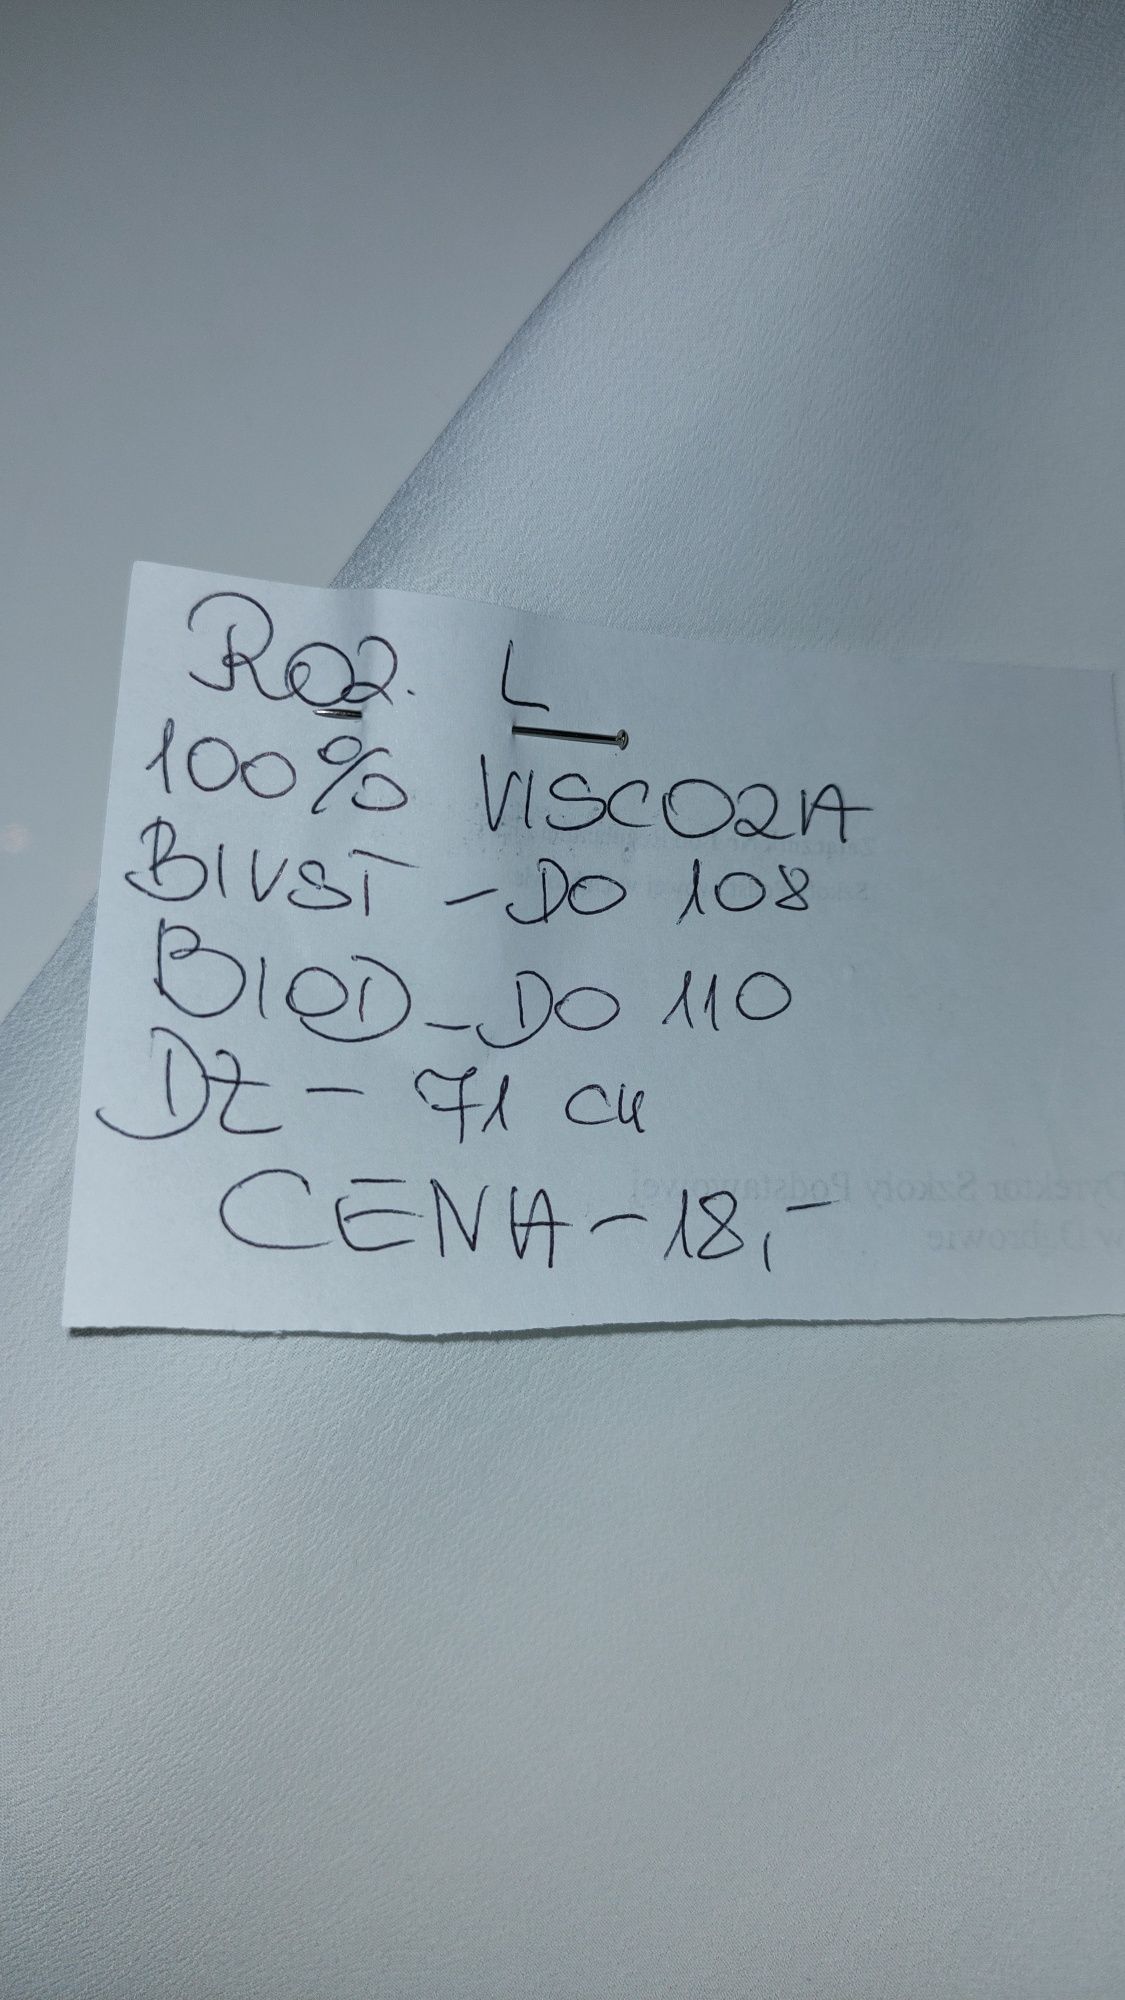 ROZ. L
100% VISCOZA
BIUST - DO 108
BIOD - DO 110
DŁ - 71 cm
CENA - 18,-
Dyrektor Szkoły Podstawowej